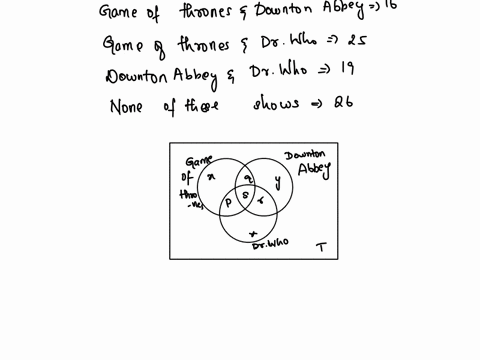 Game of thrones & Downton Abbey => 16
Game of thrones & Dr. Who => 25
Downton Abbey & Dr. Who => 19
None of these shows => 26
Game
of
thro
-nes
Downton
Abbey
x
q
y
s
p
r
x
Dr. Who
T